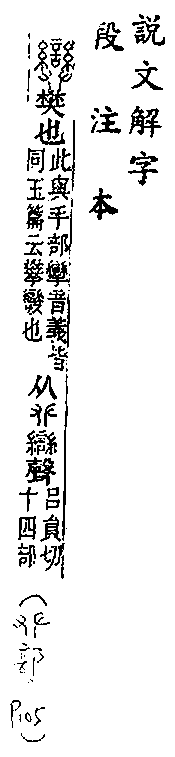 說文解字
段注本
樊也
此與手部攣音義皆
同玉篇云攀奱也
从𠬜䜌聲
呂員切
十四部
(𠬜部
P105)